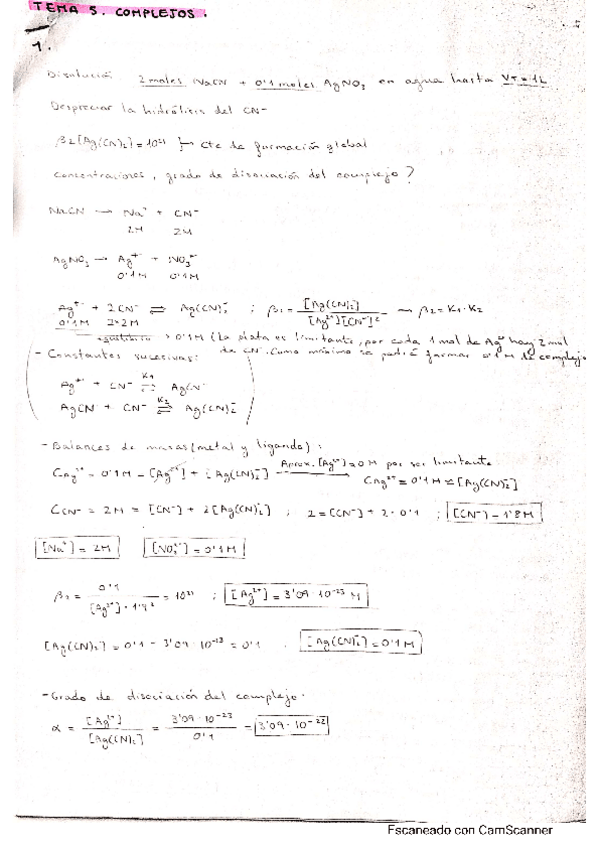 TEMA 5. COMPLEJOS.
1.
Disolución 2 moles NaCN + 0'1 moles AgNO3 en agua hasta VT = 1L
Despreciar la hidrólisis del CN-
β2 [Ag(CN)2-] = 10^21 } → cte de formación global
concentraciones, grado de disociación del complejo?
NaCN → Na+ + CN-
2M 2M
AgNO3 → Ag+ + NO3-
0'1M 0'1M
Ag+ + 2CN- ⇌ Ag(CN)2- ; β2 = [Ag(CN)2-] / [Ag+][CN-]^2 → β2 = K1·K2
0'1M 2×2M
equilibrio > 0'1M (La plata es limitante, por cada 1 mol de Ag+ hay 2 mol
de CN-. Como máximo se podrá formar 0'1M de complejo
- Constantes sucesivas:
Ag+ + CN- ⇌ (K1) AgCN
AgCN + CN- ⇌ (K2) Ag(CN)2-
- Balances de masas (metal y ligando):
CAg+ = 0'1M = [Ag+] + [Ag(CN)2-] Aprox. [Ag+] ≈ 0M por ser limitante
CAg+ = 0'1M ≈ [Ag(CN)2-]
CCN- = 2M = [CN-] + 2[Ag(CN)2-] ; 2 = [CN-] + 2·0'1 ; [CN-] = 1'8M
[Na+] = 2M [NO3-] = 0'1M
β2 = 0'1 / [Ag+]·1'8^2 = 10^21 ; [Ag+] = 3'09·10^-23 M
[Ag(CN)2-] = 0'1 - 3'09·10^-23 = 0'1 . [Ag(CN)2-] = 0'1M
- Grado de disociación del complejo.
α = [Ag+] / [Ag(CN)2-] = 3'09·10^-23 / 0'1 = 3'09·10^-22
Escaneado con CamScanner